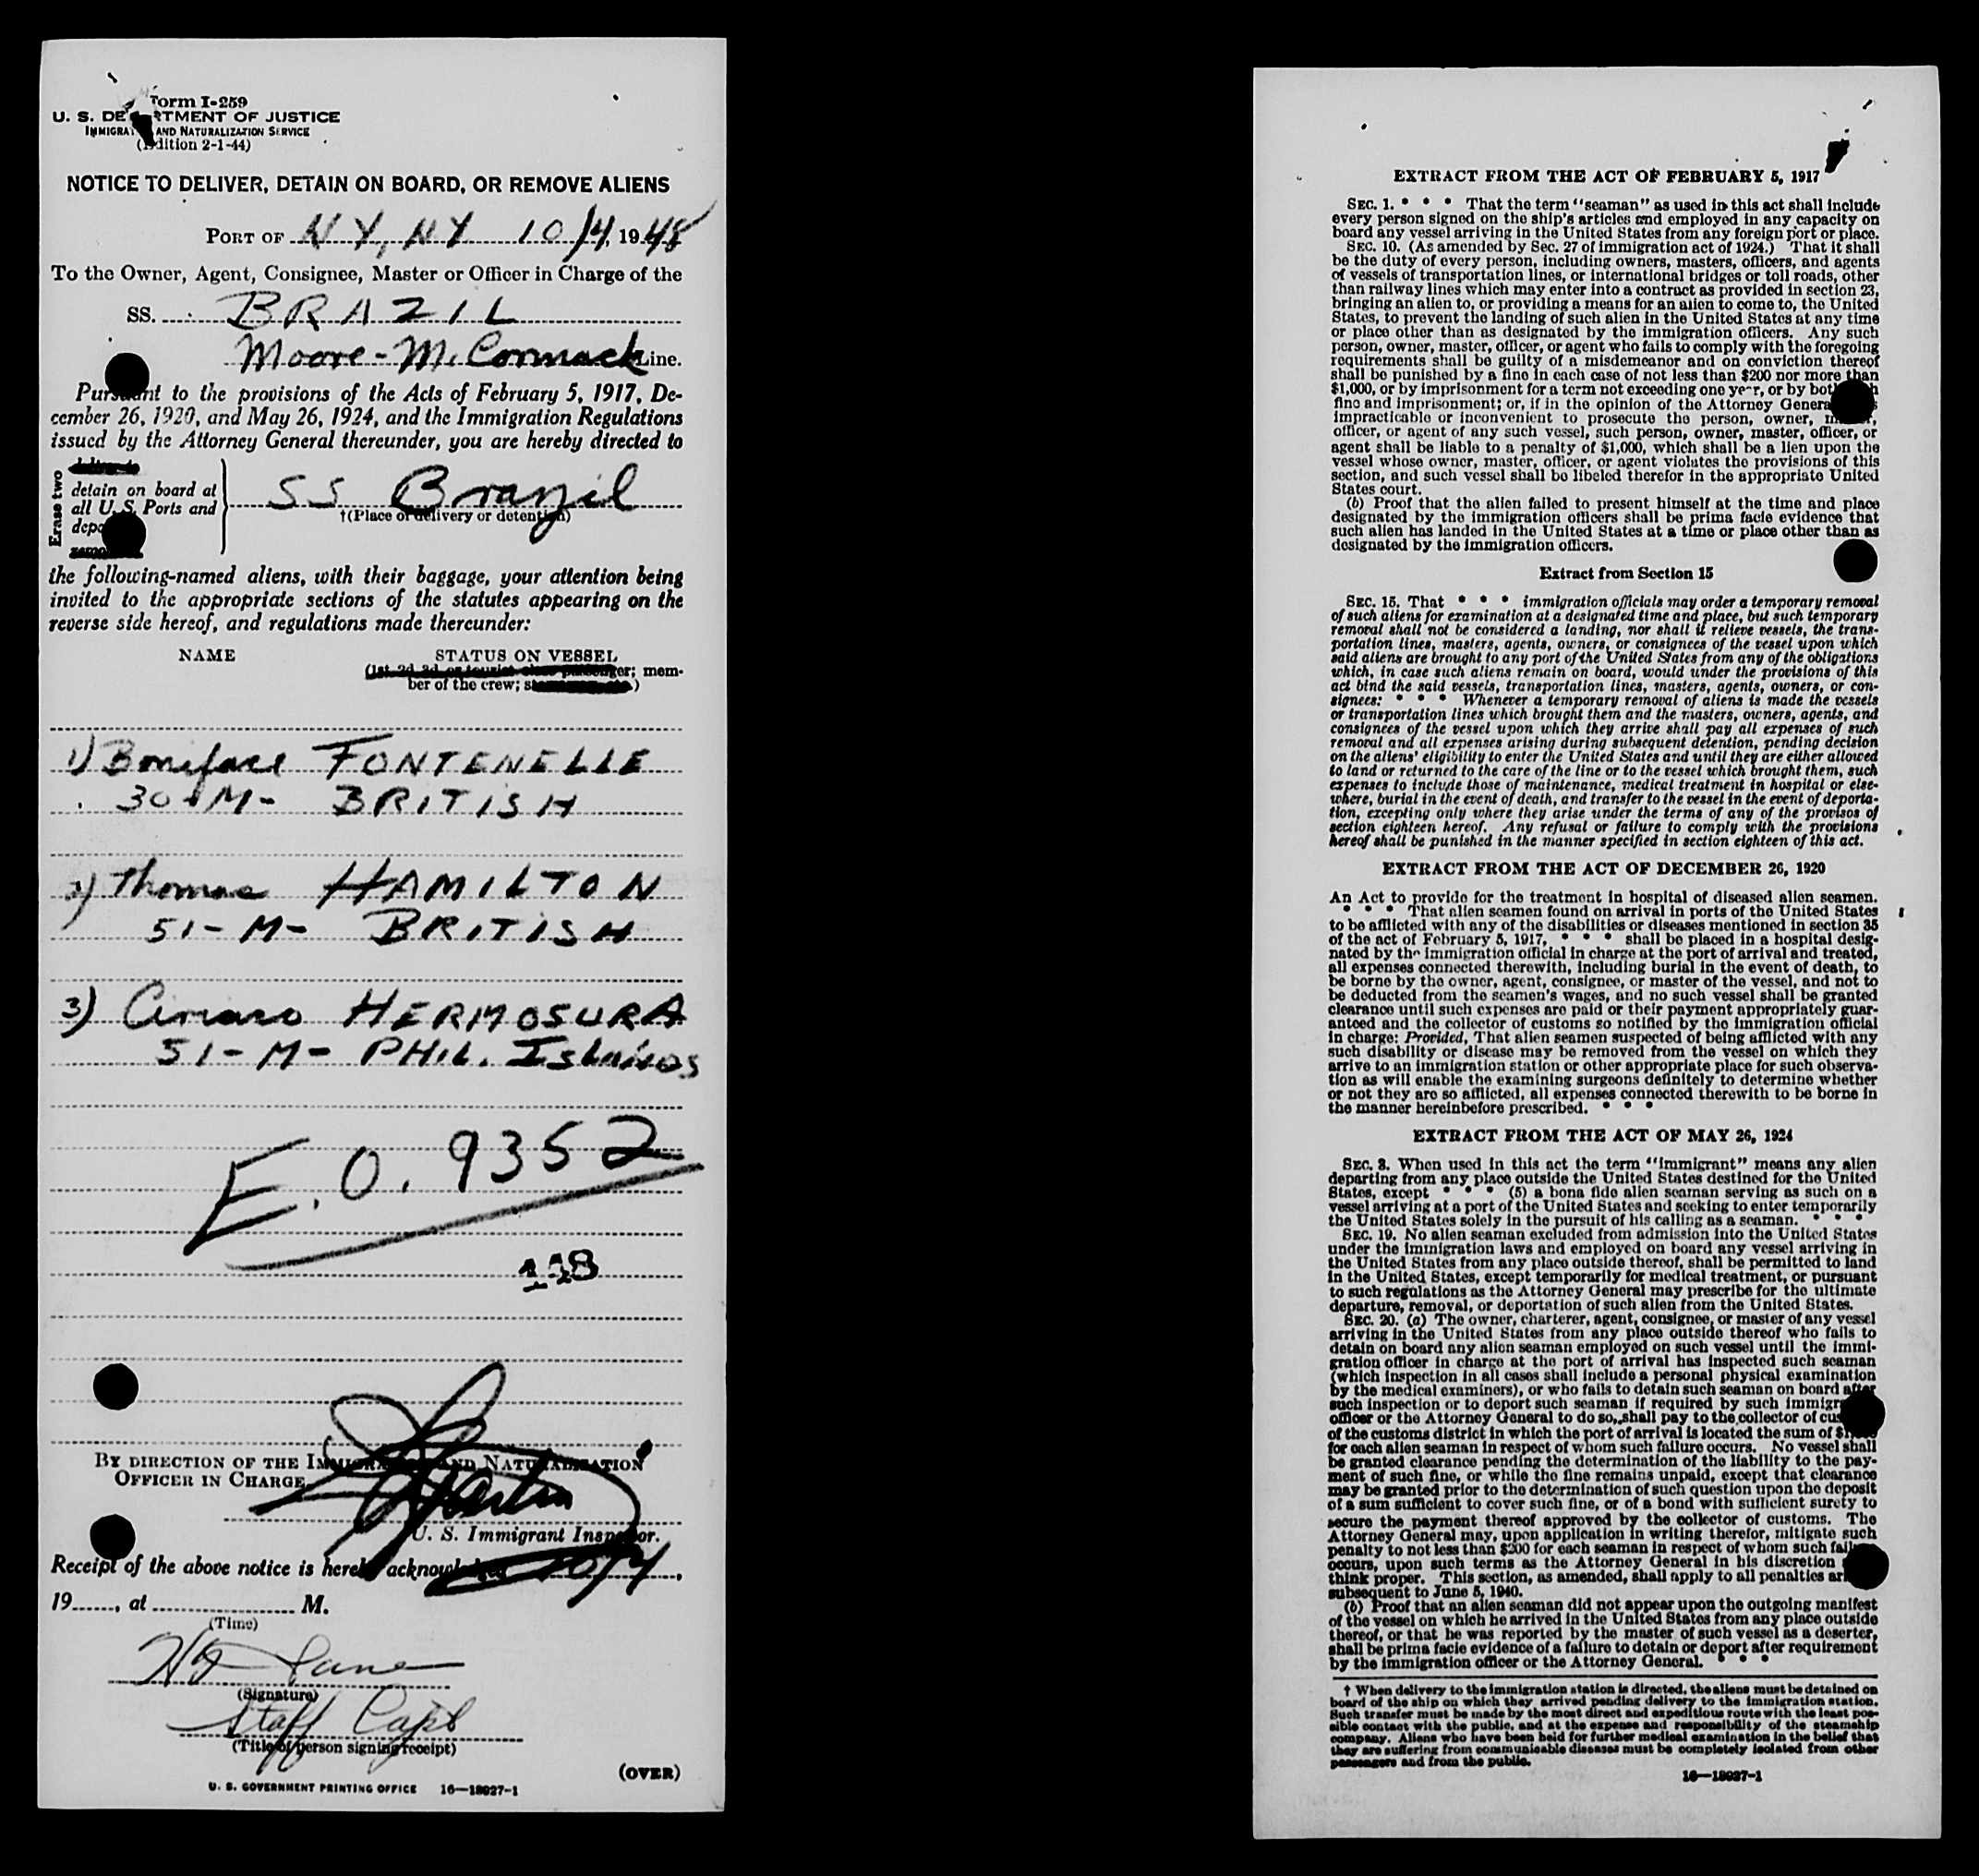 Form I-259
U. S. DEPARTMENT OF JUSTICE
IMMIGRATION AND NATURALIZATION SERVICE
(Edition 2-1-44)
NOTICE TO DELIVER, DETAIN ON BOARD, OR REMOVE ALIENS
PORT OF NY, NY 10/4, 1948
To the Owner, Agent, Consignee, Master or Officer in Charge of the
SS. BRAZIL
Moore-McCormack Line.
Pursuant to the provisions of the Acts of February 5, 1917, De-
cember 26, 1920, and May 26, 1924, and the Immigration Regulations
issued by the Attorney General thereunder, you are hereby directed to
Erase two
deliver to
detain on board at
all U. S. Ports and
SS Brazil
†(Place of delivery or detention)
the following-named aliens, with their baggage, your attention being
invited to the appropriate sections of the statutes appearing on the
reverse side hereof, and regulations made thereunder:
NAME STATUS ON VESSEL
(1st, 2d, 3d, or tourist class passenger; mem-
ber of the crew;
1) Boniface FONTENELLE
30-M- BRITISH
2) Thomas HAMILTON
51-M- BRITISH
3) HERMOSURA
51-M- PHIL. Islands
E.O. 9352
118
BY DIRECTION OF THE IMMIGRATION AND NATURALIZATION
OFFICER IN CHARGE
U. S. Immigrant Inspector.
Receipt of the above notice is hereby acknowledged 10/4,
19____, at ____ M.
(Time)
Lane
(Signature)
Staff Capt
(Title of person signing receipt)
(OVER)
U. S. GOVERNMENT PRINTING OFFICE 16—18927-1
EXTRACT FROM THE ACT OF FEBRUARY 5, 1917
SEC. 1. * * * That the term "seaman" as used in this act shall include
every person signed on the ship's articles and employed in any capacity on
board any vessel arriving in the United States from any foreign port or place.
SEC. 10. (As amended by Sec. 27 of immigration act of 1924.) That it shall
be the duty of every person, including owners, masters, officers, and agents
of vessels of transportation lines, or international bridges or toll roads, other
than railway lines which may enter into a contract as provided in section 23,
bringing an alien to, or providing a means for an alien to come to, the United
States, to prevent the landing of such alien in the United States at any time
or place other than as designated by the immigration officers. Any such
person, owner, master, officer, or agent who fails to comply with the foregoing
requirements shall be guilty of a misdemeanor and on conviction thereof
shall be punished by a fine in each case of not less than $200 nor more than
$1,000, or by imprisonment for a term not exceeding one year, or by both such
fine and imprisonment; or, if in the opinion of the Attorney General it is
impracticable or inconvenient to prosecute the person, owner, master,
officer, or agent of any such vessel, such person, owner, master, officer, or
agent shall be liable to a penalty of $1,000, which shall be a lien upon the
vessel whose owner, master, officer, or agent violates the provisions of this
section, and such vessel shall be libeled therefor in the appropriate United
States court.
(b) Proof that the alien failed to present himself at the time and place
designated by the immigration officers shall be prima facie evidence that
such alien has landed in the United States at a time or place other than as
designated by the immigration officers.
Extract from Section 15
SEC. 15. That * * * immigration officials may order a temporary removal
of such aliens for examination at a designated time and place, but such temporary
removal shall not be considered a landing, nor shall it relieve vessels, the trans-
portation lines, masters, agents, owners, or consignees of the vessel upon which
said aliens are brought to any port of the United States from any of the obligations
which, in case such aliens remain on board, would under the provisions of this
act bind the said vessels, transportation lines, masters, agents, owners, or con-
signees: * * * Whenever a temporary removal of aliens is made the vessels
or transportation lines which brought them and the masters, owners, agents, and
consignees of the vessel upon which they arrive shall pay all expenses of such
removal and all expenses arising during subsequent detention, pending decision
on the aliens' eligibility to enter the United States and until they are either allowed
to land or returned to the care of the line or to the vessel which brought them, such
expenses to include those of maintenance, medical treatment in hospital or else-
where, burial in the event of death, and transfer to the vessel in the event of deporta-
tion, excepting only where they arise under the terms of any of the provisos of
section eighteen hereof. Any refusal or failure to comply with the provisions
hereof shall be punished in the manner specified in section eighteen of this act.
EXTRACT FROM THE ACT OF DECEMBER 26, 1920
An Act to provide for the treatment in hospital of diseased alien seamen.
* * * That alien seamen found on arrival in ports of the United States
to be afflicted with any of the disabilities or diseases mentioned in section 35
of the act of February 5, 1917, * * * shall be placed in a hospital desig-
nated by the immigration official in charge at the port of arrival and treated,
all expenses connected therewith, including burial in the event of death, to
be borne by the owner, agent, consignee, or master of the vessel, and not to
be deducted from the seamen's wages, and no such vessel shall be granted
clearance until such expenses are paid or their payment appropriately guar-
anteed and the collector of customs so notified by the immigration official
in charge: Provided, That alien seamen suspected of being afflicted with any
such disability or disease may be removed from the vessel on which they
arrive to an immigration station or other appropriate place for such observa-
tion as will enable the examining surgeons definitely to determine whether
or not they are so afflicted, all expenses connected therewith to be borne in
the manner hereinbefore prescribed. * * *
EXTRACT FROM THE ACT OF MAY 26, 1924
SEC. 3. When used in this act the term "immigrant" means any alien
departing from any place outside the United States destined for the United
States, except * * * (5) a bona fide alien seaman serving as such on a
vessel arriving at a port of the United States and seeking to enter temporarily
the United States solely in the pursuit of his calling as a seaman. * * *
SEC. 19. No alien seaman excluded from admission into the United States
under the immigration laws and employed on board any vessel arriving in
the United States from any place outside thereof, shall be permitted to land
in the United States, except temporarily for medical treatment, or pursuant
to such regulations as the Attorney General may prescribe for the ultimate
departure, removal, or deportation of such alien from the United States.
SEC. 20. (a) The owner, charterer, agent, consignee, or master of any vessel
arriving in the United States from any place outside thereof who fails to
detain on board any alien seaman employed on such vessel until the immi-
gration officer in charge at the port of arrival has inspected such seaman
(which inspection in all cases shall include a personal physical examination
by the medical examiners), or who fails to detain such seaman on board after
such inspection or to deport such seaman if required by such immigration
officer or the Attorney General to do so, shall pay to the collector of customs
of the customs district in which the port of arrival is located the sum of $1,000
for each alien seaman in respect of whom such failure occurs. No vessel shall
be granted clearance pending the determination of the liability to the pay-
ment of such fine, or while the fine remains unpaid, except that clearance
may be granted prior to the determination of such question upon the deposit
of a sum sufficient to cover such fine, or of a bond with sufficient surety to
secure the payment thereof approved by the collector of customs. The
Attorney General may, upon application in writing therefor, mitigate such
penalty to not less than $200 for each seaman in respect of whom such failure
occurs, upon such terms as the Attorney General in his discretion shall
think proper. This section, as amended, shall apply to all penalties arising
subsequent to June 5, 1940.
(b) Proof that an alien seaman did not appear upon the outgoing manifest
of the vessel on which he arrived in the United States from any place outside
thereof, or that he was reported by the master of such vessel as a deserter,
shall be prima facie evidence of a failure to detain or deport after requirement
by the immigration officer or the Attorney General. * * *
† When delivery to the immigration station is directed, the aliens must be detained on
board of the ship on which they arrived pending delivery to the immigration station.
Such transfer must be made by the most direct and expeditious route with the least pos-
sible contact with the public, and at the expense and responsibility of the steamship
company. Aliens who have been held for further medical examination in the belief that
they are suffering from communicable diseases must be completely isolated from other
passengers and from the public.
16—18927-1